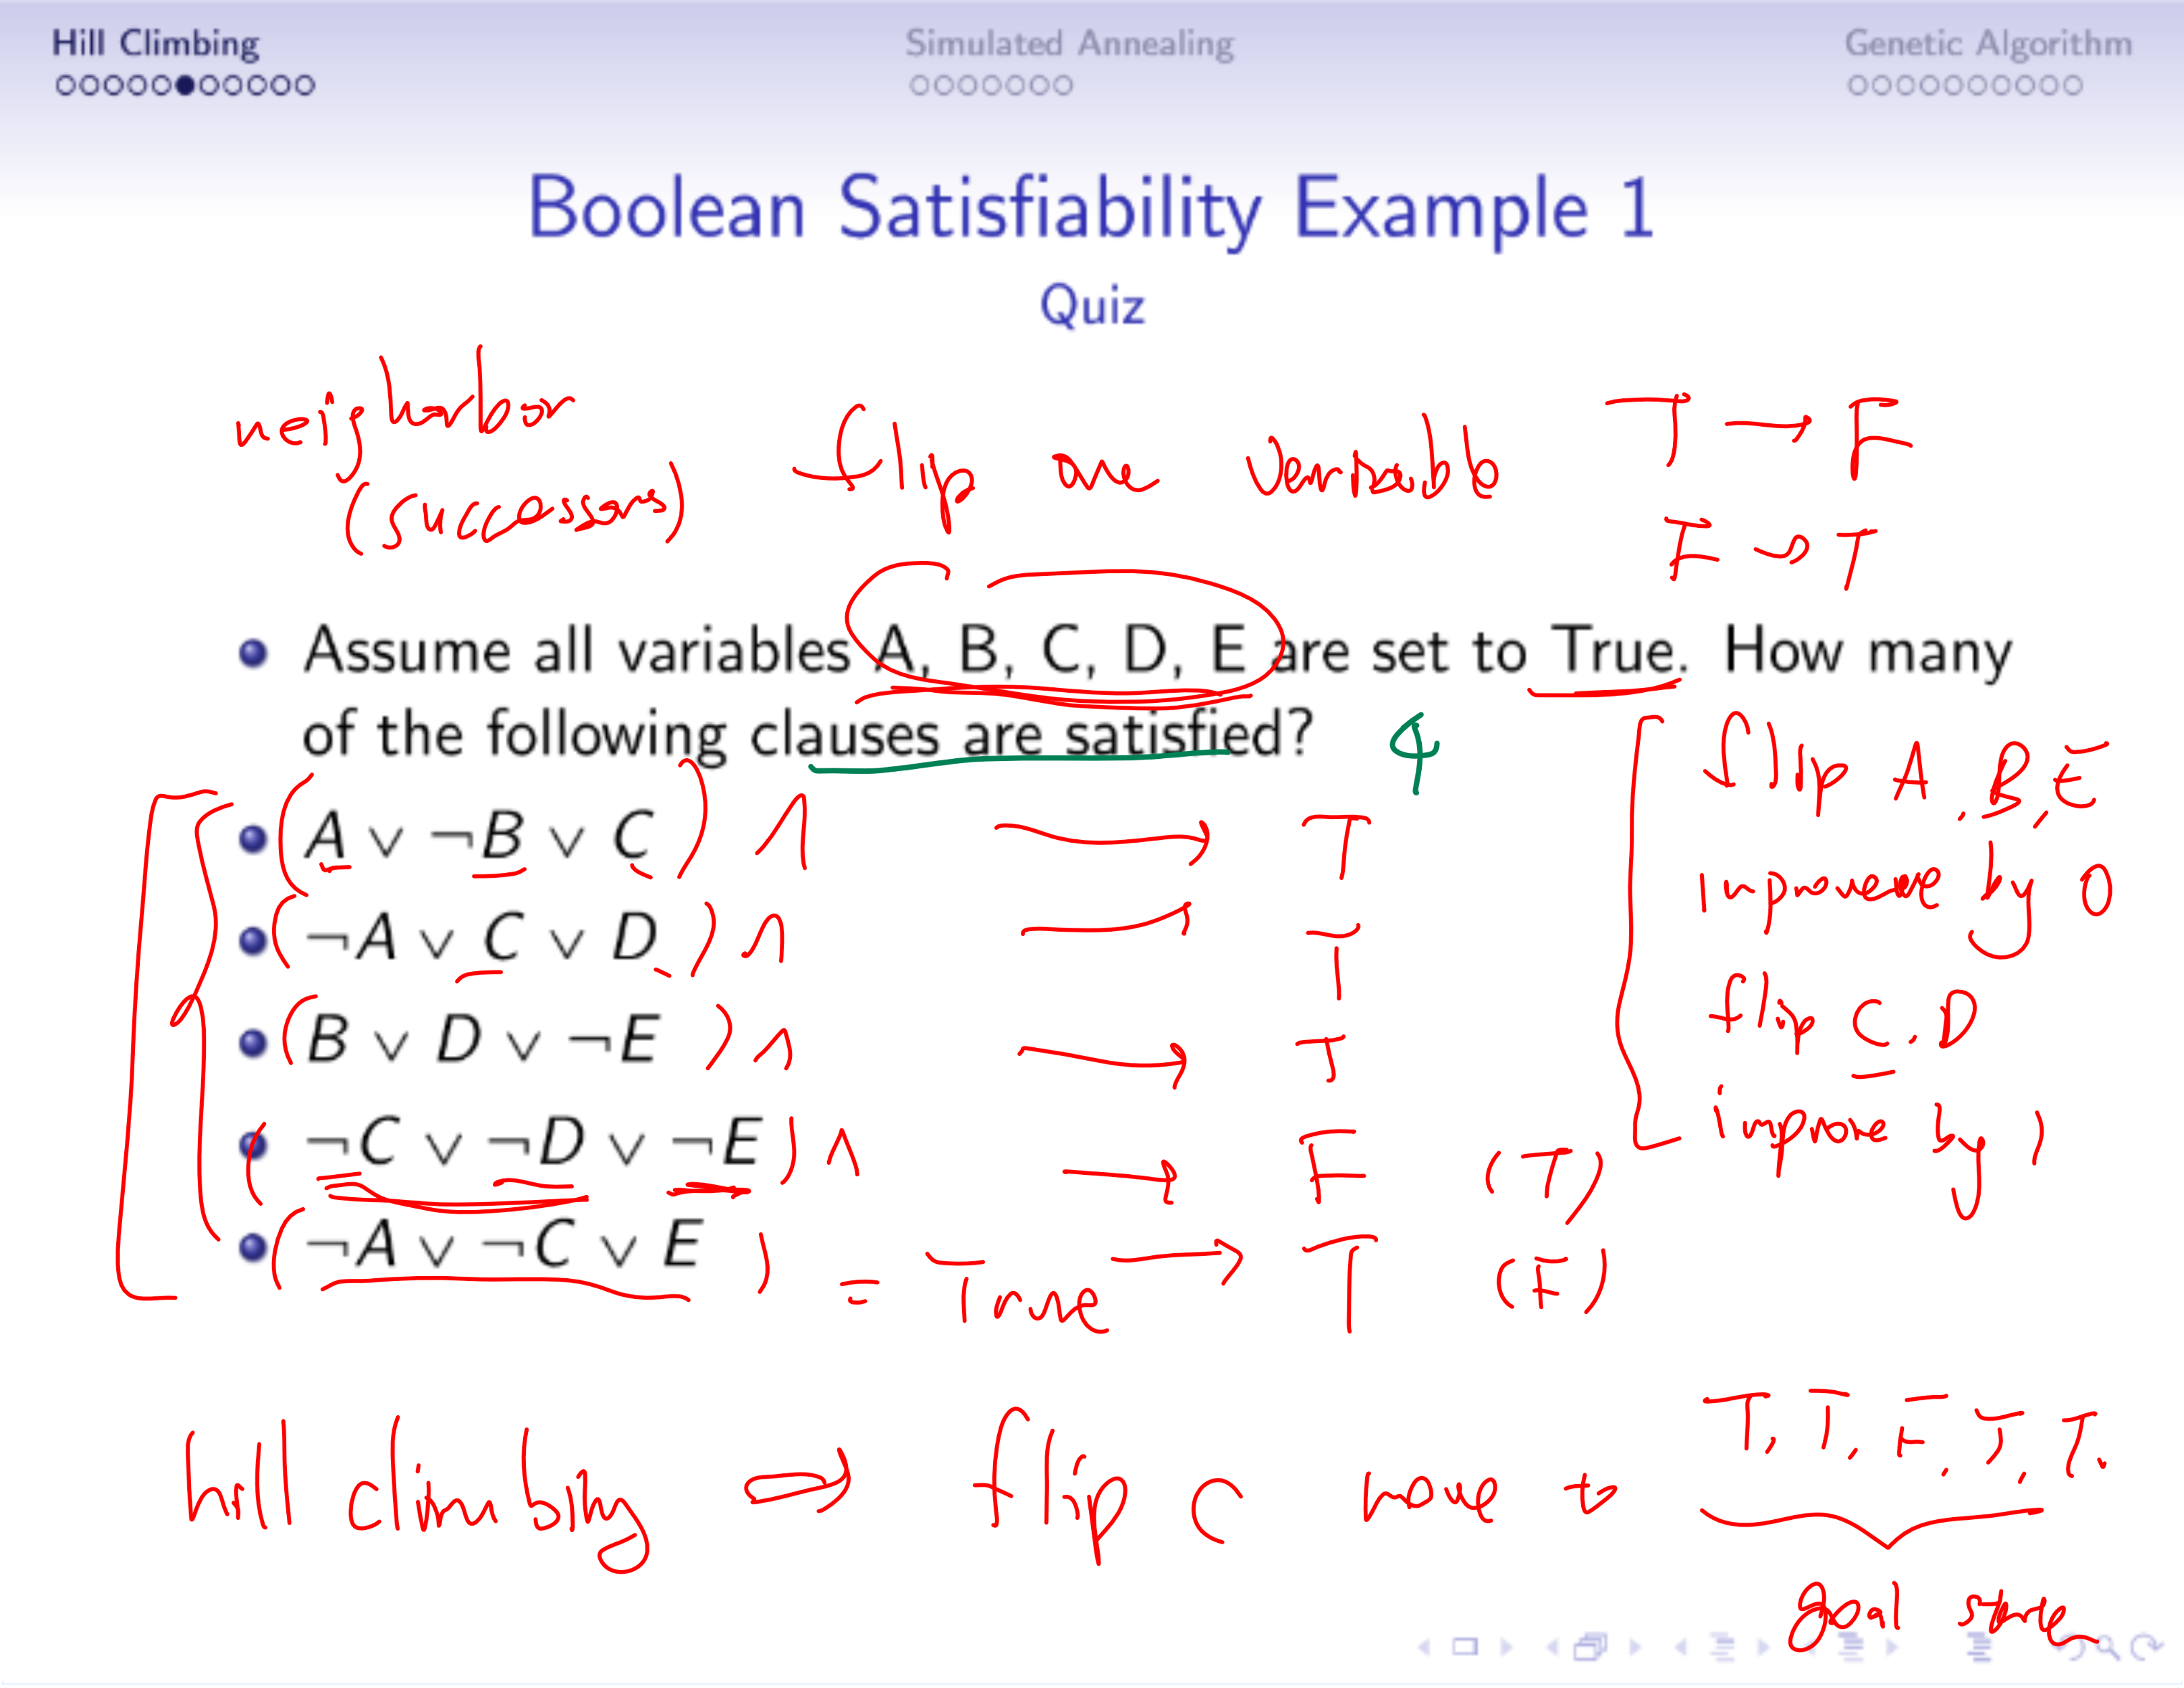 Hill Climbing Simulated Annealing Genetic Algorithm
Boolean Satisfiability Example 1
Quiz
neighborhor flip one variable T → F
(successors) F → T
Assume all variables A, B, C, D, E are set to True. How many
of the following clauses are satisfied? 4
(A ∨ ¬B ∨ C) ∧ → T
(¬A ∨ C ∨ D) ∧ → T
(B ∨ D ∨ ¬E) ∧ → T
(¬C ∨ ¬D ∨ ¬E) ∧ → F (T)
(¬A ∨ ¬C ∨ E) = True → T (F)
flip A, B, E
improve by 0
flip C, D
improve by 1
hill climbing ⇒ flip C move to T, T, F, T, T.
goal state